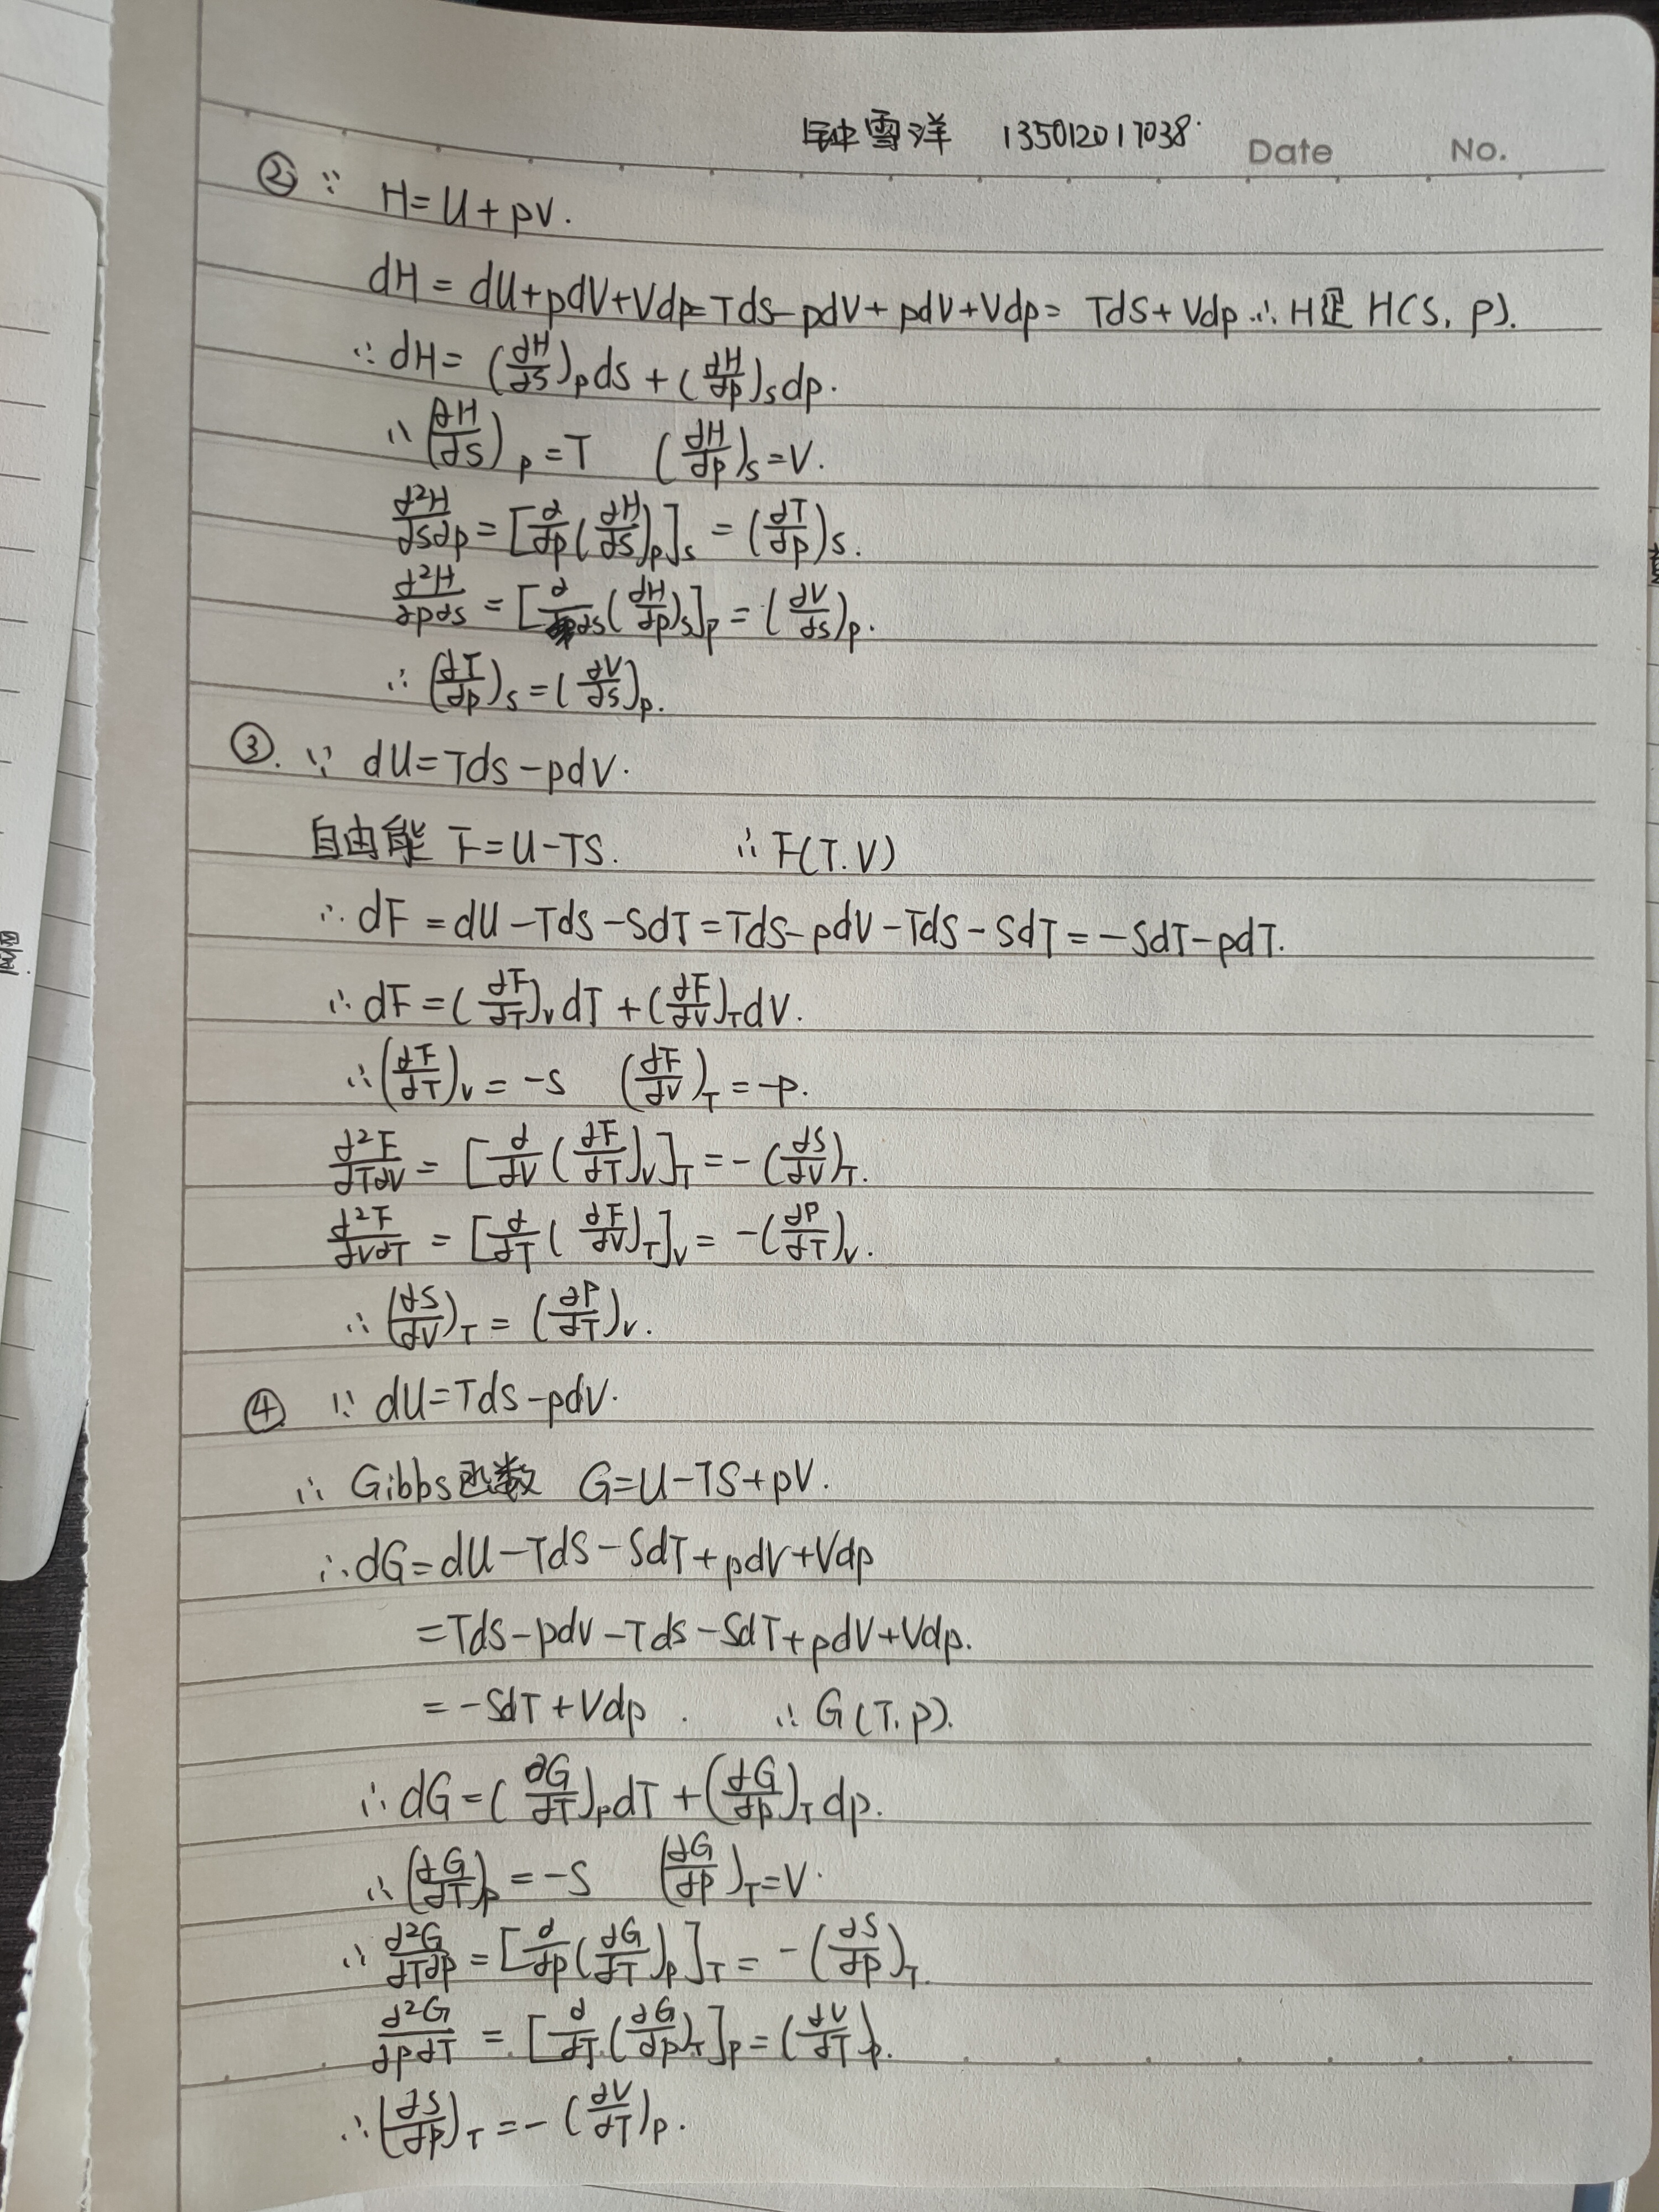 钟雪洋 135012017038.
Date No.
② ∵ H=U+pV.
dH=dU+pdV+Vdp=TdS-pdV+pdV+Vdp=TdS+Vdp ∴H是H(S,p).
∵dH=(∂H/∂S)_p dS+(∂H/∂p)_S dp.
∴(∂H/∂S)_p=T (∂H/∂p)_S=V.
∂²H/∂S∂p=[∂/∂p(∂H/∂S)_p]_S=(∂T/∂p)_S.
∂²H/∂p∂S=[∂/∂S(∂H/∂p)_S]_p=(∂V/∂S)_p.
∴(∂T/∂p)_S=(∂V/∂S)_p.
③. ∵ dU=TdS-pdV.
自由能 F=U-TS. ∴F(T.V)
∴dF=dU-TdS-SdT=TdS-pdV-TdS-SdT=-SdT-pdT.
∴dF=(∂F/∂T)_V dT+(∂F/∂V)_T dV.
∴(∂F/∂T)_V=-S (∂F/∂V)_T=-p.
∂²F/∂T∂V=[∂/∂V(∂F/∂T)_V]_T=-(∂S/∂V)_T.
∂²F/∂V∂T=[∂/∂T(∂F/∂V)_T]_V=-(∂P/∂T)_V.
∴(∂S/∂V)_T=(∂P/∂T)_V.
④ ∵ dU=TdS-pdV.
∴ Gibbs函数 G=U-TS+pV.
∴dG=dU-TdS-SdT+pdV+Vdp
=TdS-pdV-TdS-SdT+pdV+Vdp.
=-SdT+Vdp. ∴G(T,p).
∴dG=(∂G/∂T)_p dT+(∂G/∂p)_T dp.
∴(∂G/∂T)_p=-S (∂G/∂p)_T=V.
∴∂²G/∂T∂p=[∂/∂p(∂G/∂T)_p]_T=-(∂S/∂p)_T.
∂²G/∂p∂T=[∂/∂T(∂G/∂p)_T]_p=(∂V/∂T)_p.
∴(∂S/∂p)_T=-(∂V/∂T)_p.